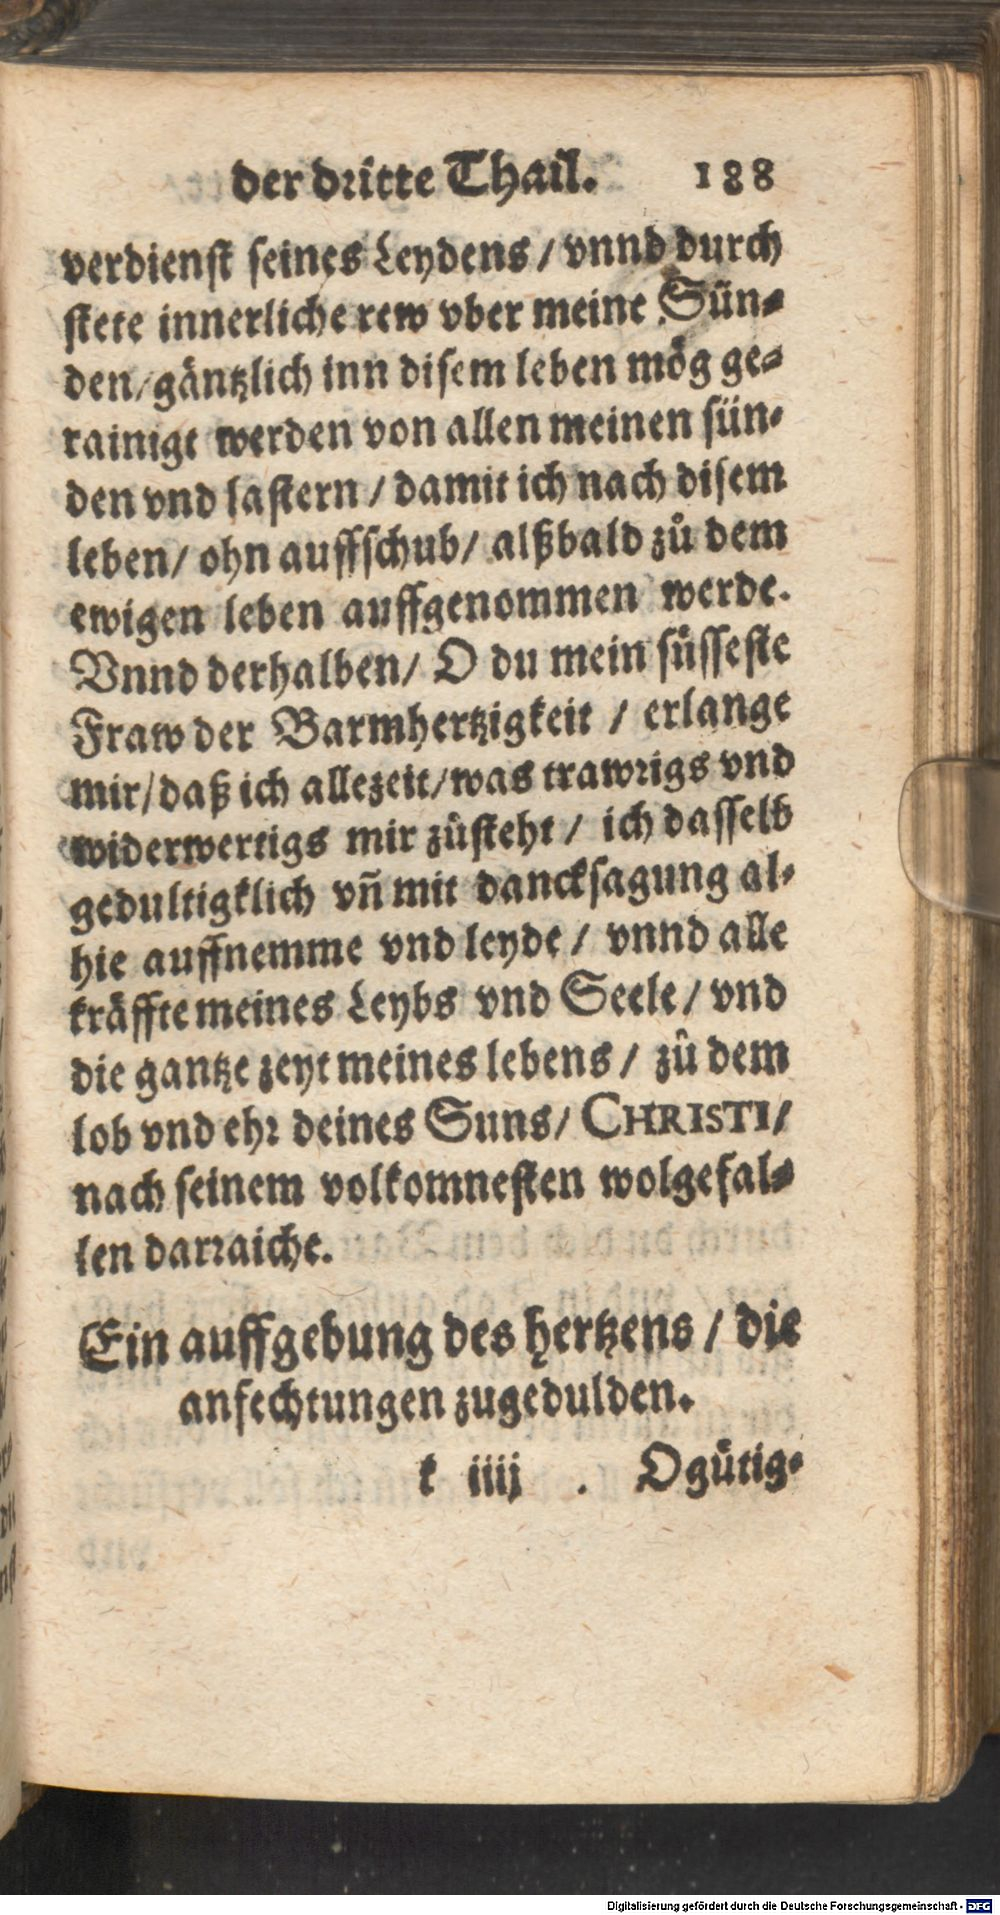 der dritte Thail. 188
verdienst seines Leydens / vnnd durch
stete innerliche rew vber meine Sün-
den / gäntzlich inn disem leben mög ge-
rainigt werden von allen meinen sün-
den vnd lastern / damit ich nach disem
leben / ohn auffschub / alßbald zů dem
ewigen leben auffgenommen werde.
Vnnd derhalben / O du mein süsseste
Fraw der Barmhertzigkeit / erlange
mir / daß ich allezeit / was trawrigs vnd
widerwertigs mir zůsteht / ich dasselb
gedultigklich vñ mit dancksagung al-
hie auffnemme vnd leyde / vnnd alle
kräffte meines Leybs vnd Seele / vnd
die gantze zeyt meines lebens / zů dem
lob vnd ehr deines Suns / CHRISTI /
nach seinem volkomnesten wolgefal-
len darraiche.
Ein auffgebung des hertzens / die
anfechtungen zugedulden.
k iiij . O gütig-
Digitalisierung gefördert durch die Deutsche Forschungsgemeinschaft - DFG